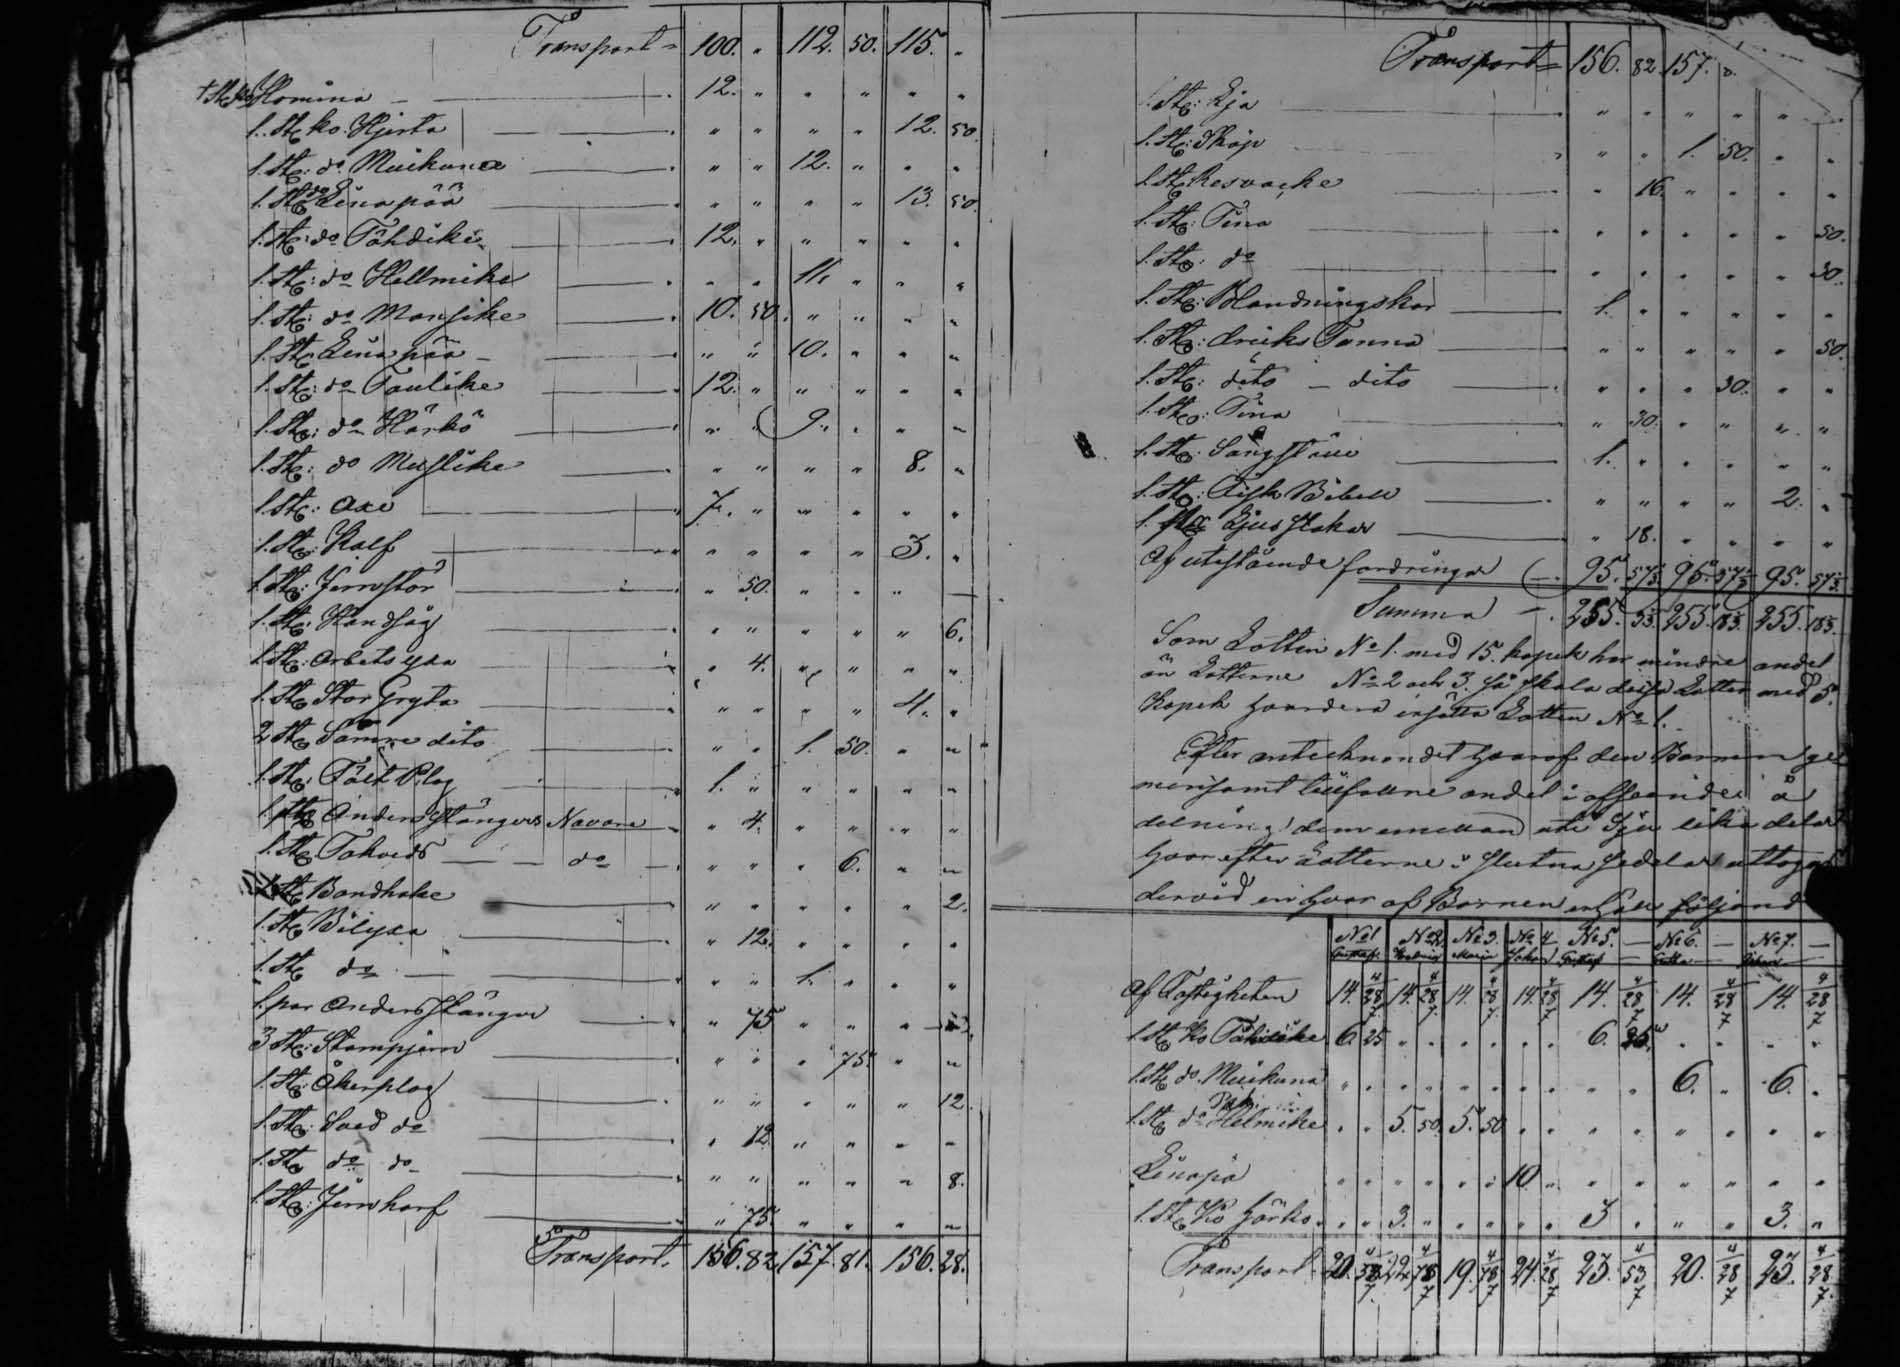 Transport 100. " 112. 50. 115. "
Homina 12. " " " " "
1. St ko Hjerta " " " " 12. 50.
1. St: do Muikuna " " 12. " " "
1. St do Linapää " " " " 13. 50.
1. St: do Tähdike 12. " " " " "
1. St: do Hellmike " " 11. " " "
1. St: do Mansike 10. 50. " " " "
1. St Linapää " " 10. " " "
1. St: do Taulike 12. " " " " "
1. St: do Härkö " " 9. " " "
1. St: do Mustike " " " " 8. "
1. St: Oxe 7. " " " " "
1. St: Kalf " " " " 3. "
1. St: Jernstör " 50. " " "
1. St: Handsåg " " " " " 6.
1. St: Arbetsyxa " 4. " " " "
1. St Stor Gryta " " " " 4. "
2 St Sämre dito " " 1. 50. " "
1. St: Tält Plog 1. " " " " "
1. St Anderstångers Navare " 4. " " " "
1. St Takveds do " " " 6. " "
St Bandhake " " " " " 2.
1. St Bilyxa " 12. " " " "
1. St do " " 1. " " "
1. par Anderstånger " 75 " " "
3 St: Stampjern " " " 75. " "
1. St: Åkerplog " " " " " 12.
1. St: Sved do " 12 " " " "
1. St do do " " " " " 8.
1. St: Jernharf " 75. " " " "
Transport. 156. 82. 157. 81. 156. 28.
Transport 156. 82. 157.
1. St: " " " " "
1. St: Skåp " " 1. 50. " "
1. St: " 16. " " " "
1. St: Tina " " " " " 50.
1. St: do " " " " " 30.
1. St: Blandningskar 1. " " " " "
1. St: dricks Tunna " " " " " 50.
1. St: dito dito " " " 30. " "
1. St: Tina " 30. " " " "
1. St: Sängställe 1. " " " " "
1. St: Bibell " " " " 2. "
1. Ljusstakar " 18. " " " "
Af utestående fordringar 95. 57 1/3. 95. 57 1/3 95. 57 1/3.
Summa 255. 255. 255.
Som Lotten No 1. med 15. kopek har mindre andel
än Lotterne No 2 och 3. så skola dessa Lotter med 5.
kopek hvardera ersätta Lotten No 1.
Efter antecknandet hvaraf den Barnen ge
mensamt tillfallne andel i afseende å
delning dem emellan uti Sju lika delar
hvarefter Lotterne i slutna sedelar uttogs
dervid en hvar af Barnen erhöll följand
No 1 No 2 No 3. No 4 No 5. No 6. No 7.
Gustaf Maria Johan Gustaf
Af Fastigheten 14. 4/28/7 14. 4/28/7 14. 4/28/7 14. 4/28/7 14. 4/28/7 14. 4/28/7 14. 4/28/7
1. St ko Tähdike 6. 25 " " " " " " 6. 25. " " " "
1. St do. Muikuna " " " " " " " " " " 6. " 6. "
1. St do Helmike " " 5. 50. 5. 50 " " " " " " " "
Linapä " " " " " " 10. " " " " " " "
1. St Ko Härkö " " 3. " " " " " 3 " " " 3. "
Transport 20. 22. 19. 4/78/7 24. 4/28/7 23. 4/53/7 20. 4/28/7 23. 4/28/7